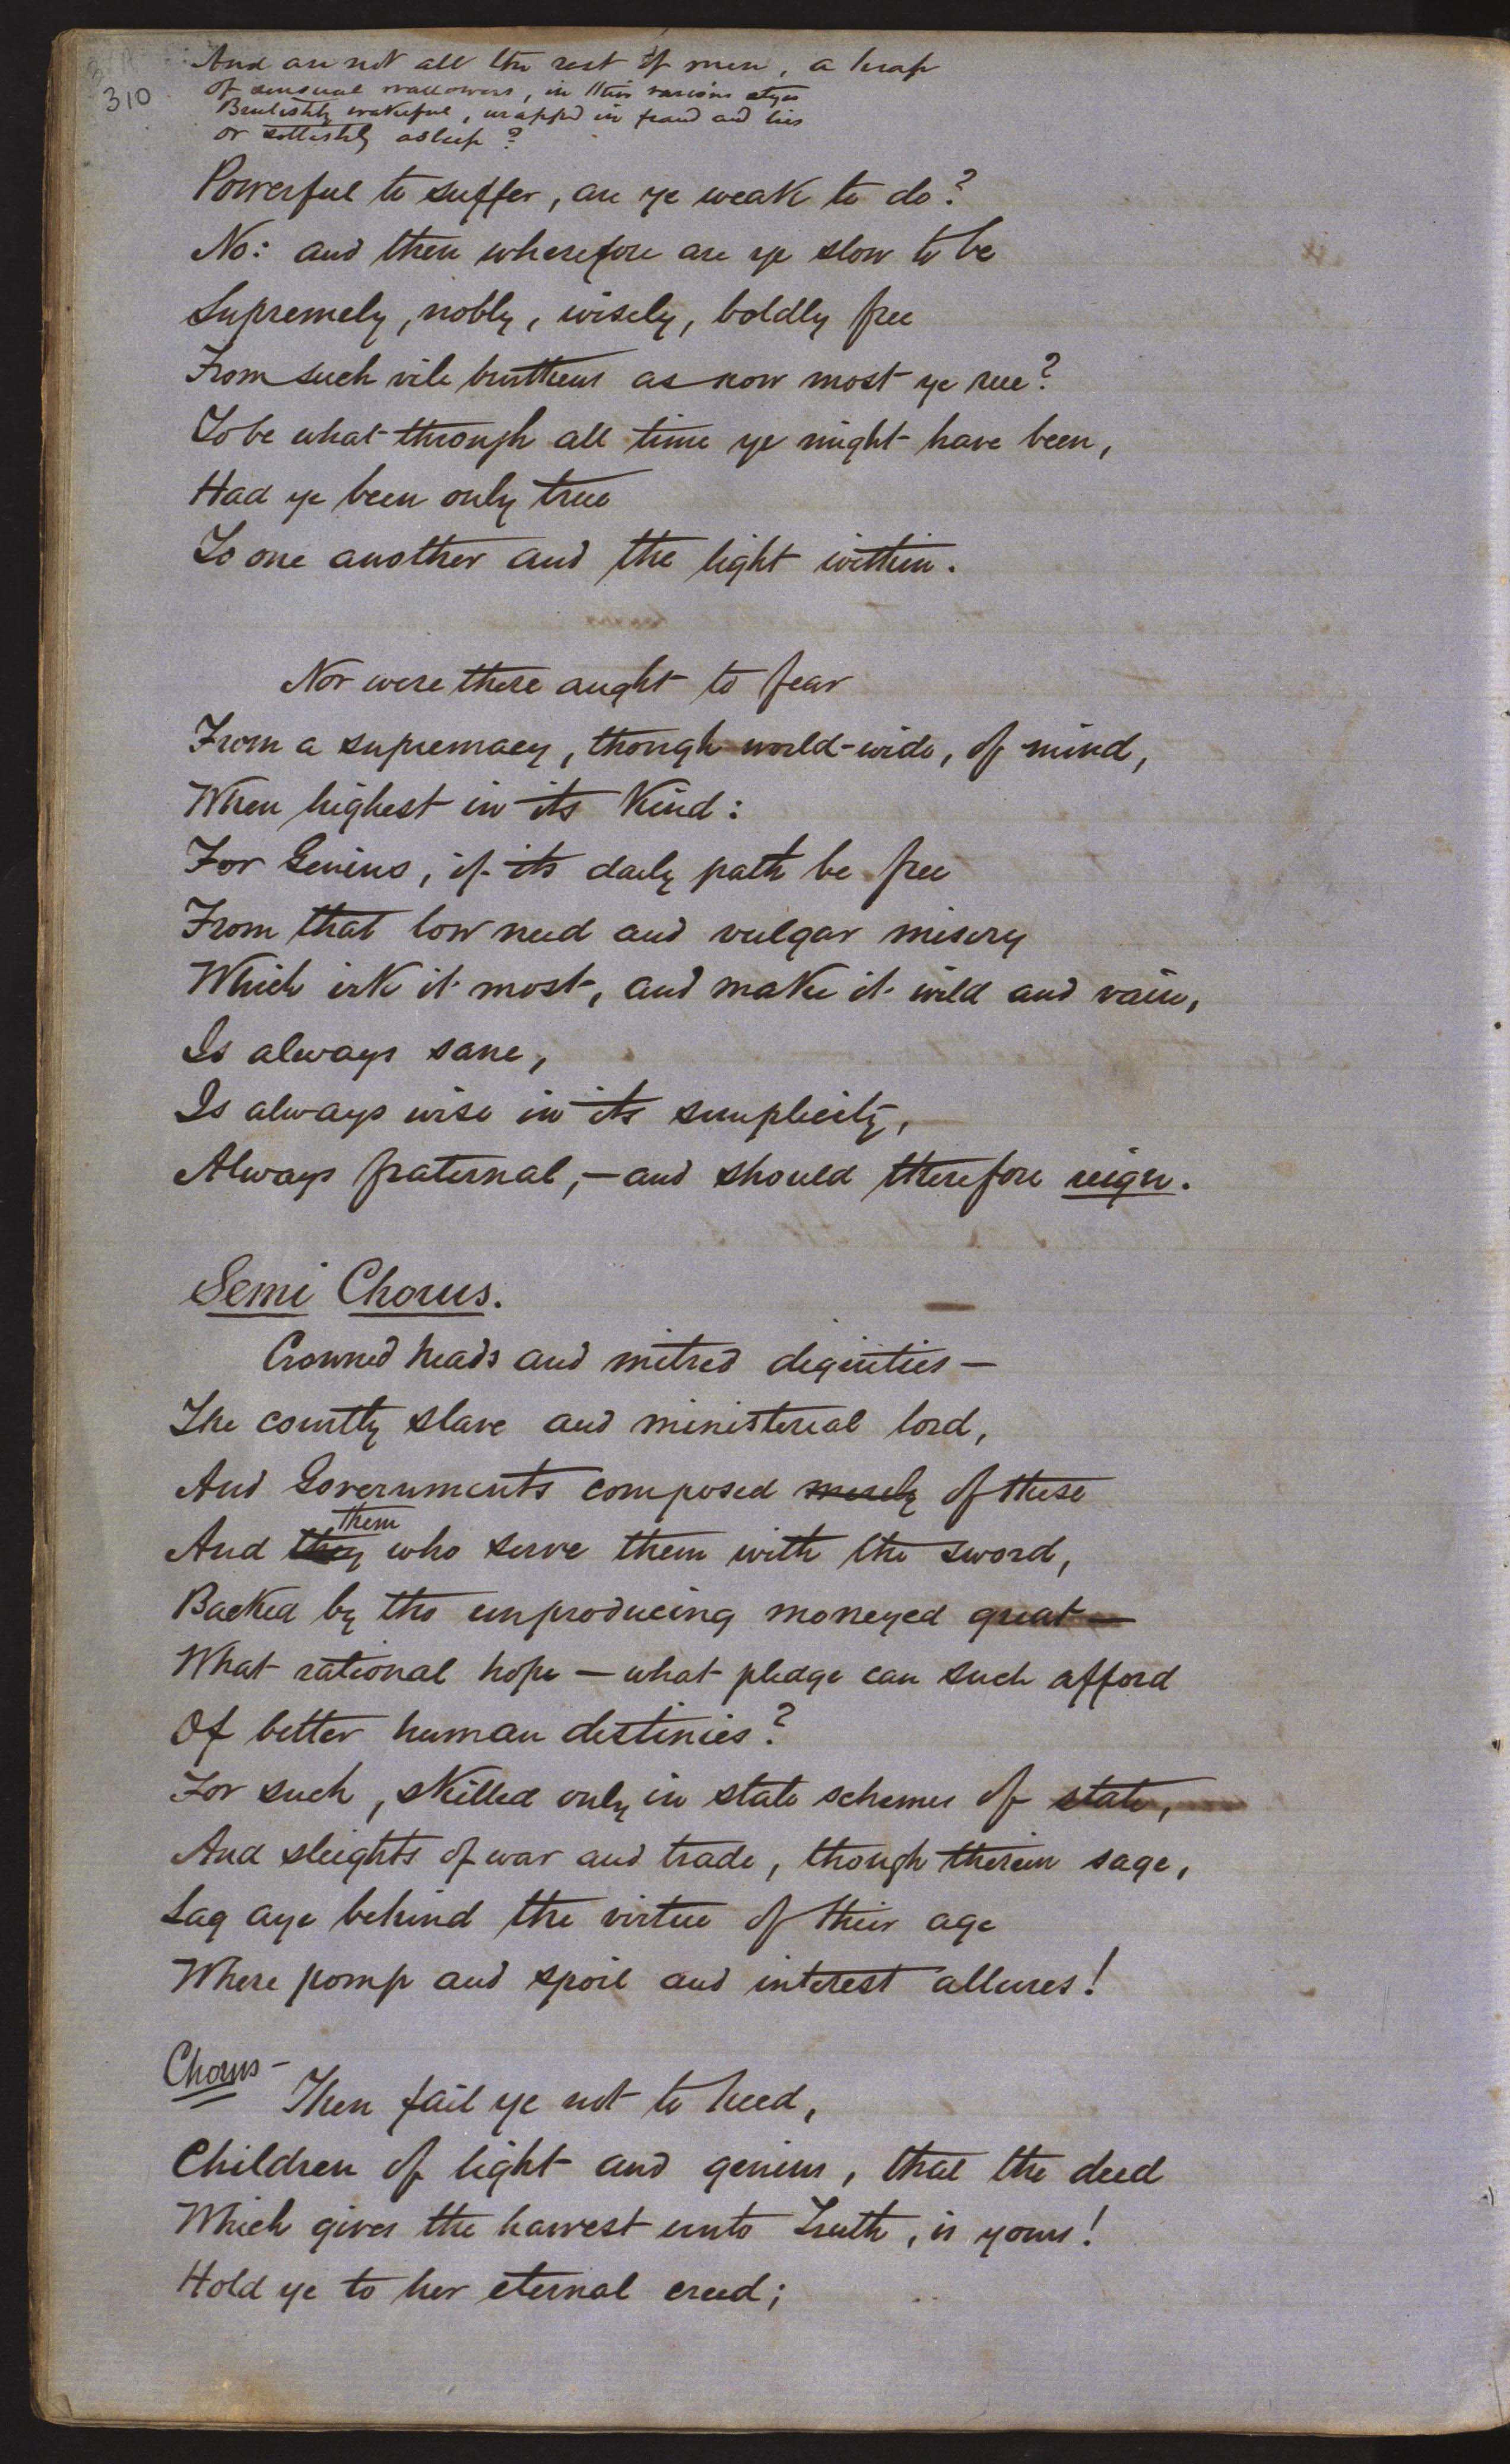 310
And are not all the rest of men, a heap
Of sensual wallowers, in their various styes
Brutishly wakeful, wrapped in fraud and lies
Or sottishly asleep?
Powerful to suffer, are ye weak to do?
No: and then wherefore are ye slow to be
Supremely, nobly, wisely, boldly free
From such vile burthens as now most ye rue?
To be what through all time ye might have been,
Had ye been only true
To one another and the light within.
Nor were there aught to fear
From a supremacy, though world-wide, of mind,
When highest in its kind:
For Genius, if its daily path be free
From that low need and vulgar misery
Which irk it most, and make it wild and vain,
Is always sane,
Is always wise in its simplicity,
Always fraternal,—and should therefore reign.
Semi Chorus.
Crowned heads and mitred dignities—
The courtly slave and ministerial lord,
And Governments composed merely of these
them
And they who serve them with the sword,
Backed by the unproducing moneyed great—
What rational hope—what pledge can such afford
Of better human destinies?
For such, skilled only in state schemes of state,
And sleights of war and trade, though therein sage,
Lag aye behind the virtue of their age
Where pomp and spoil and interest allures!
Chorus—
Then fail ye not to heed,
Children of light and genius, that the deed
Which gives the harvest unto Truth, is yours!
Hold ye to her eternal creed;